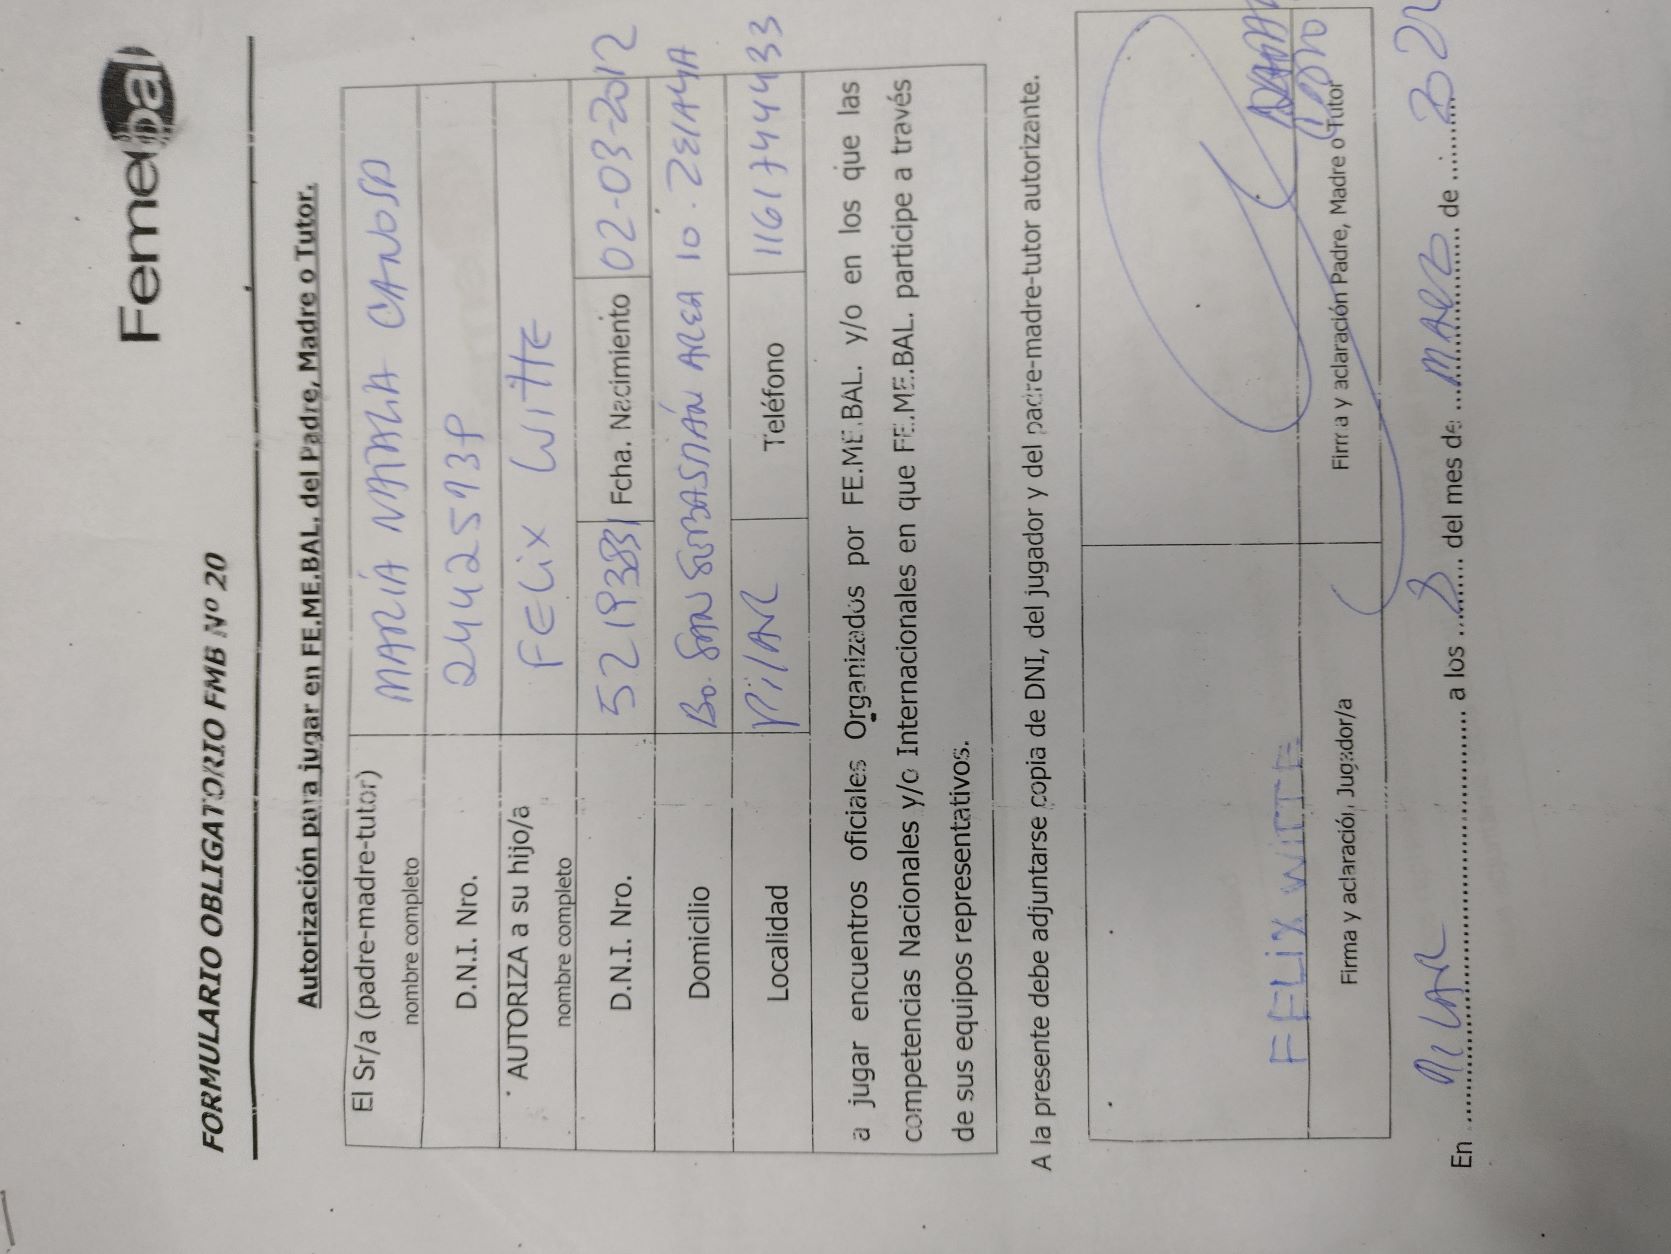 Femebal
FORMULARIO OBLIGATORIO FMB Nº 20
Autorización para jugar en FE.ME.BAL. del Padre, Madre o Tutor.
El Sr/a (padre-madre-tutor) nombre completo MARÍA NATALIA CANOSA
D.N.I. Nro.
AUTORIZA a su hijo/a nombre completo FELIX WITTE
D.N.I. Nro. Fcha. Nacimiento 02-03-2012
Domicilio Bo. SAN SEBASTIÁN AREA 10. ZELAYA
Localidad PILAR Teléfono 1161744433
a jugar encuentros oficiales Organizados por FE.ME.BAL. y/o en los que las
competencias Nacionales y/o Internacionales en que FE.ME.BAL. participe a través
de sus equipos representativos.
A la presente debe adjuntarse copia de DNI, del jugador y del padre-madre-tutor autorizante.
FELIX WITTE
Firma y aclaración, Jugador/a Firma y aclaración Padre, Madre o Tutor
En PILAR a los 8 del mes de MARZO de